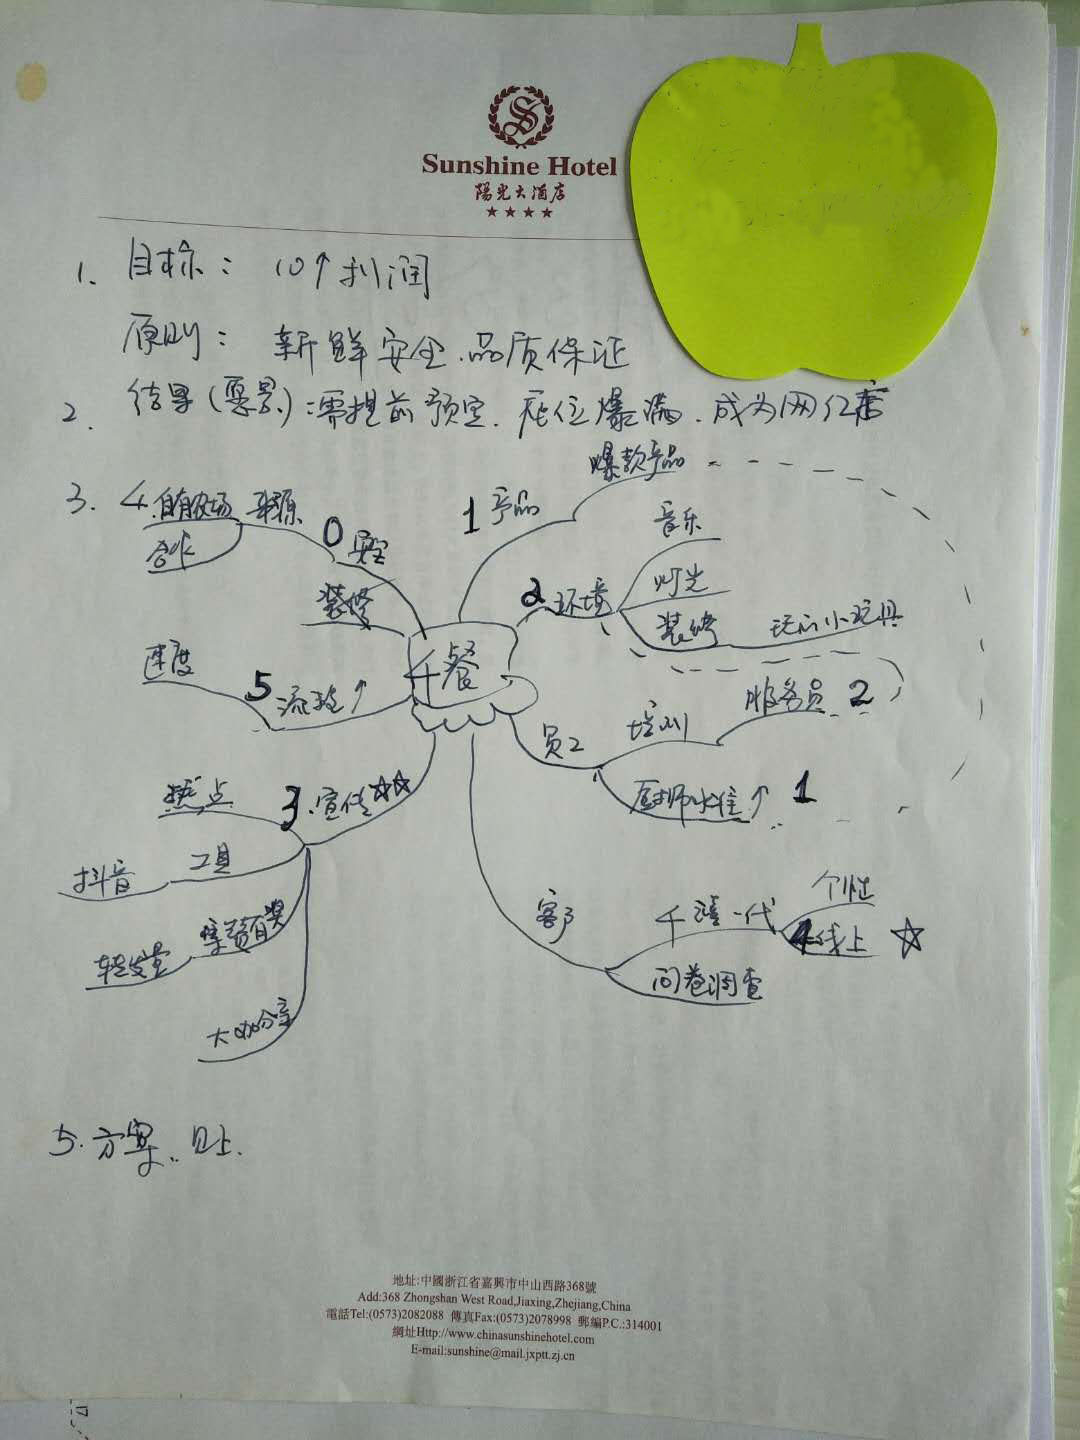 Sunshine Hotel
陽光大酒店
1. 目标： 10↑利润
原则： 新鲜安全.品质保证
2. 结果(愿景)：需提前预定.座位爆满.成为网红店
爆款产品
3. 4.自有农场 来源
合作
0 安全
1 产品
音乐
灯光
2 环境
装修
装修
速度
5 流程↑
午餐
服务员 2
培训
员工
厨师水准↑ 1
热点
3.宣传☆☆
工具
抖音
转发
大咖分享
客户
千禧一代
个性
线上 ☆
问卷调查
5.方案.
地址:中國浙江省嘉興市中山西路368號
Add:368 Zhongshan West Road,Jiaxing,Zhejiang,China
電話Tel:(0573)2082088 傳真Fax:(0573)2078998 郵編P.C.:314001
網址Http://www.chinasunshinehotel.com
E-mail:sunshine@mail.jxptt.zj.cn